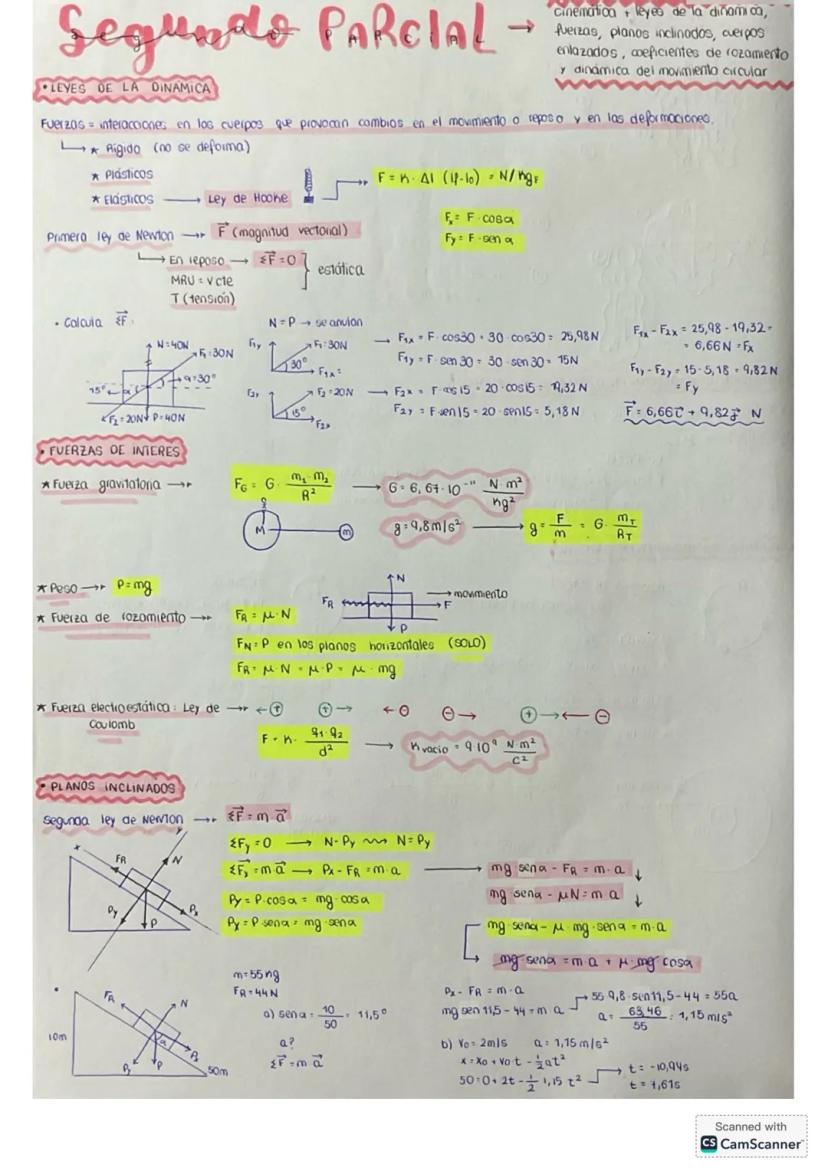 Segundo PARCIAL →
PARCIAL
cinemática + leyes de la dinámica,
fuerzas, planos inclinados, cuerpos
enlazados, coeficientes de rozamiento
y dinámica del movimiento circular
• LEYES DE LA DINÁMICA
Fuerzas = interacciones en los cuerpos que provocan cambios en el movimiento o reposo y en las deformaciones.
↳ ★ Rígido (no se deforma)
★ Plásticos
★ Elásticos → Ley de Hooke → F = K · Δl (lf-lo) = N/kgF
Fx = F · cos α
Fy = F · sen α
Primera ley de Newton → F⃗ (magnitud vectorial)
↳ En reposo → ΣF⃗ = 0
MRU = v cte
T (tensión)
estática
• Calcula ΣF⃗
N = P → se anulan
N = 40N
F₁ = 30N
α = 30°
15°
α
F₂ = 20N P = 40N
F₁y F₁ = 30N
30° F₁x
F₂y F₂ = 20N
15° F₂x
→ F₁x = F · cos30 = 30 · cos30 = 25,98N
F₁y = F · sen30 = 30 · sen30 = 15N
→ F₂x = F · cos15 = 20 · cos15 = 19,32N
F₂y = F sen15 = 20 · sen15 = 5,18N
F₁x - F₂x = 25,98 - 19,32 =
= 6,66N = Fx
F₁y - F₂y = 15 - 5,18 = 9,82N
= Fy
F⃗ = 6,66i⃗ + 9,82j⃗ N
• FUERZAS DE INTERÉS
★ Fuerza gravitatoria → FG = G · m₁ · m₂ / R² → G = 6,67 · 10⁻¹¹ N · m² / kg²
M m
g = 9,8 m/s² → g = F / m = G · mT / RT
★ Peso → P = mg
★ Fuerza de rozamiento → FR = μ · N
N
FR movimiento
F
P
FN = P en los planos horizontales (SOLO)
FR = μ · N = μ · P = μ · mg
★ Fuerza electroestática: Ley de → ← ⊕ ⊕ → ← ⊖ ⊖ → ⊕ → ← ⊖
Coulomb
F = K · q₁ · q₂ / d² → K vacío = 9 · 10⁹ N · m² / C²
• PLANOS INCLINADOS
Segunda ley de Newton → ΣF⃗ = m a⃗
y
x FR N
Py P Px
ΣFy = 0 → N - Py ⟿ N = Py
ΣF⃗x = m a⃗ → Px - FR = m · a → mg sen α - FR = m · a ↓
mg sen α - μN = m a ↓
Py = P · cos α = mg · cos α
Px = P sen α = mg · sen α
mg · sen α - μ · mg · sen α = m · a
mg sen α = m · a + μ · mg cos α
•
FR N
α
10m Py P Px
50m
m = 55 kg
FR = 44N
a) sen α = 10 / 50 = 11,5°
a?
ΣF⃗ = m a⃗
Px - FR = m · a
mg sen 11,5 - 44 = m a
55 · 9,8 · sen11,5 - 44 = 55a
a = 63,46 / 55 = 1,15 m/s²
b) Vo = 2m/s a = 1,15 m/s²
x = xo + vo · t - ½at²
50 = 0 + 2t - ½ 1,15 t²
t = -10,94s
t = 7,61s
Scanned with
CS CamScanner